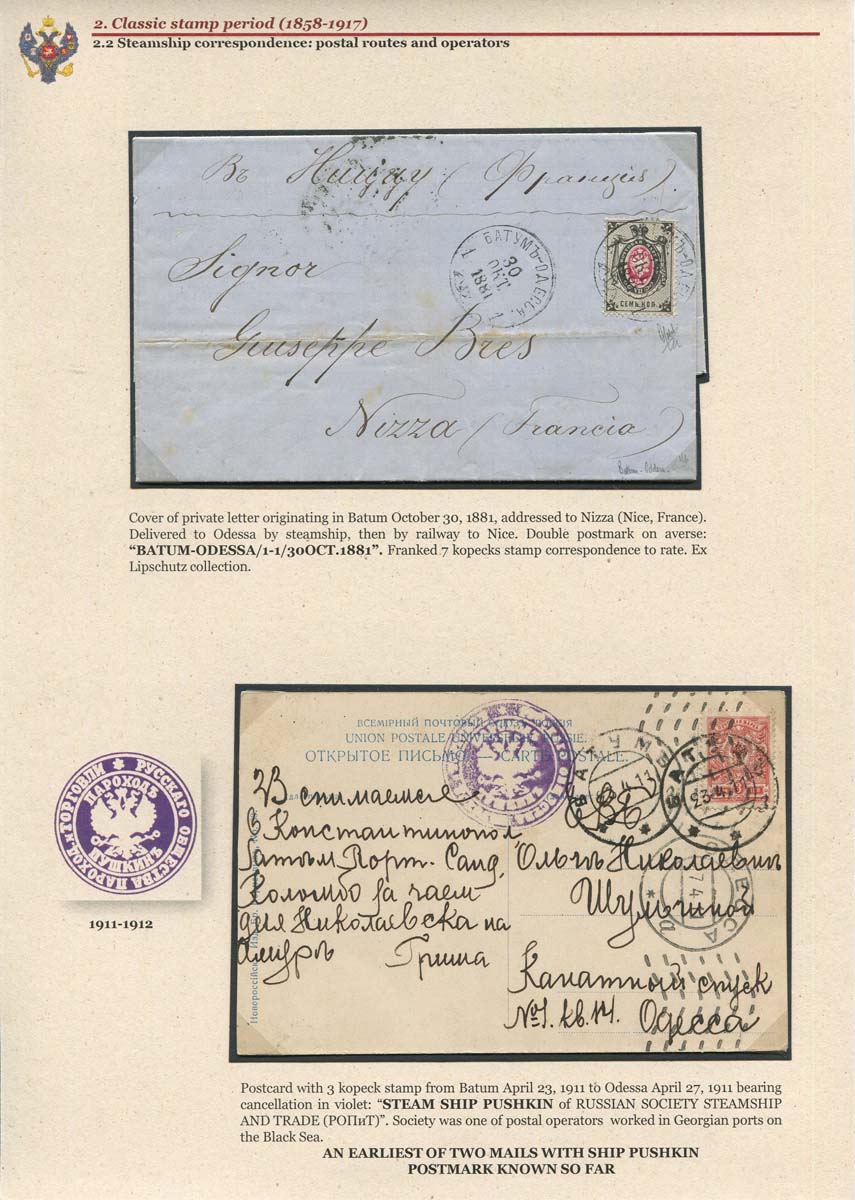 2. Classic stamp period (1858-1917)
2.2 Steamship correspondence: postal routes and operators
Въ Ниццу (Франція).
Signor
БАТУМЪ-ОДЕССА
1
30
ОКТ.
1881
1
СЕМЬ КОП.
Giuseppe Bres
Nizza (Francia)
Batum - Odessa
Cover of private letter originating in Batum October 30, 1881, addressed to Nizza (Nice, France).
Delivered to Odessa by steamship, then by railway to Nice. Double postmark on averse:
“BATUM-ODESSA/1-1/30OCT.1881”. Franked 7 kopecks stamp correspondence to rate. Ex
Lipschutz collection.
ВСЕМІРНЫЙ ПОЧТОВЫЙ СОЮЗЪ. РОССІЯ
UNION POSTALE UNIVERSELLE. RUSSIE.
ОТКРЫТОЕ ПИСЬМО — CARTE POSTALE.
БАТУМЪ
23.4.11
ОДЕССА
Снимаемся
в Константинопол
затѣм Порт. Саид,
Коломбо за чаем
для Николаевска на
Амурѣ Гриша
Ольгѣ Николаевнѣ
Шульгиной
Канатный спуск
№1. кв. 14. Одесса
РУССКАГО ОБЩЕСТВА ПАРОХОД. и ТОРГОВЛИ
ПАРОХОДЪ
1911-1912
Postcard with 3 kopeck stamp from Batum April 23, 1911 to Odessa April 27, 1911 bearing
cancellation in violet: “STEAM SHIP PUSHKIN of RUSSIAN SOCIETY STEAMSHIP
AND TRADE (РОПиТ)”. Society was one of postal operators worked in Georgian ports on
the Black Sea.
AN EARLIEST OF TWO MAILS WITH SHIP PUSHKIN
POSTMARK KNOWN SO FAR